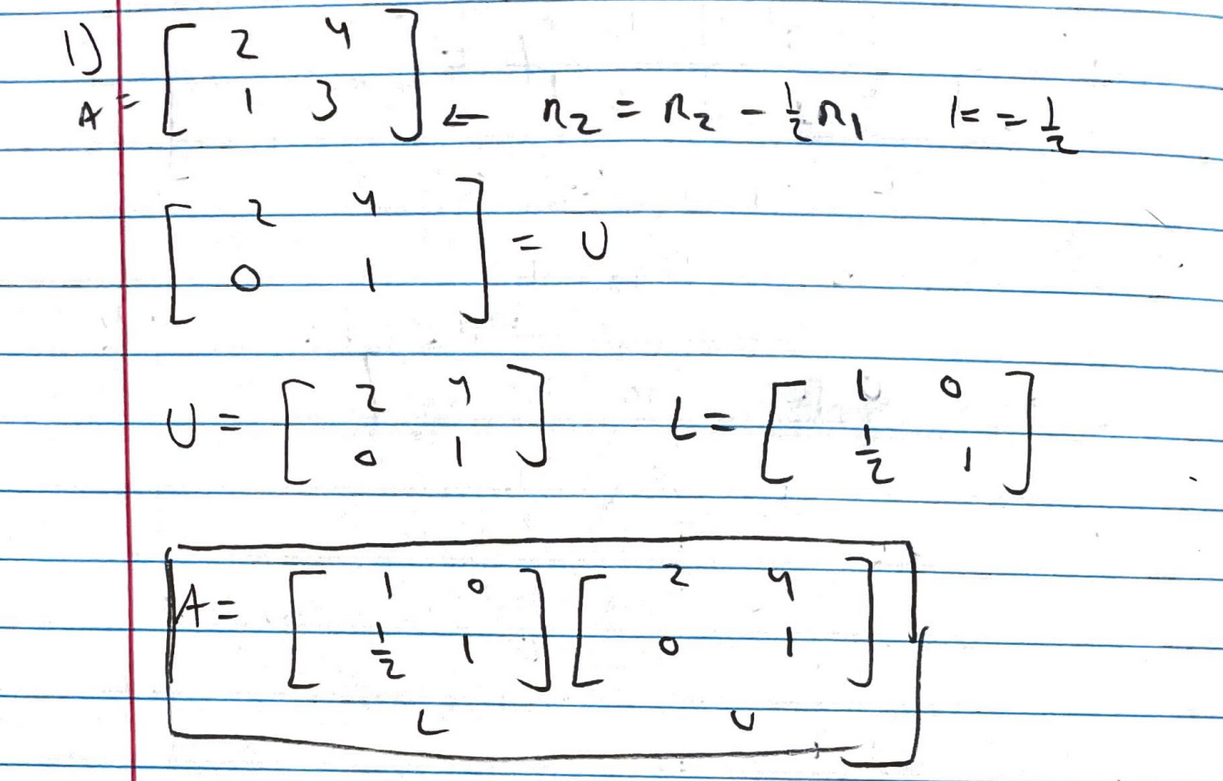 1)
A = [ 2 4
1 3 ] ← R₂ = R₂ - ½R₁ k = ½
[ 2 4
0 1 ] = U
U = [ 2 4
0 1 ] L = [ 1 0
½ 1 ]
A = [ 1 0
½ 1 ] [ 2 4
0 1 ]
L U